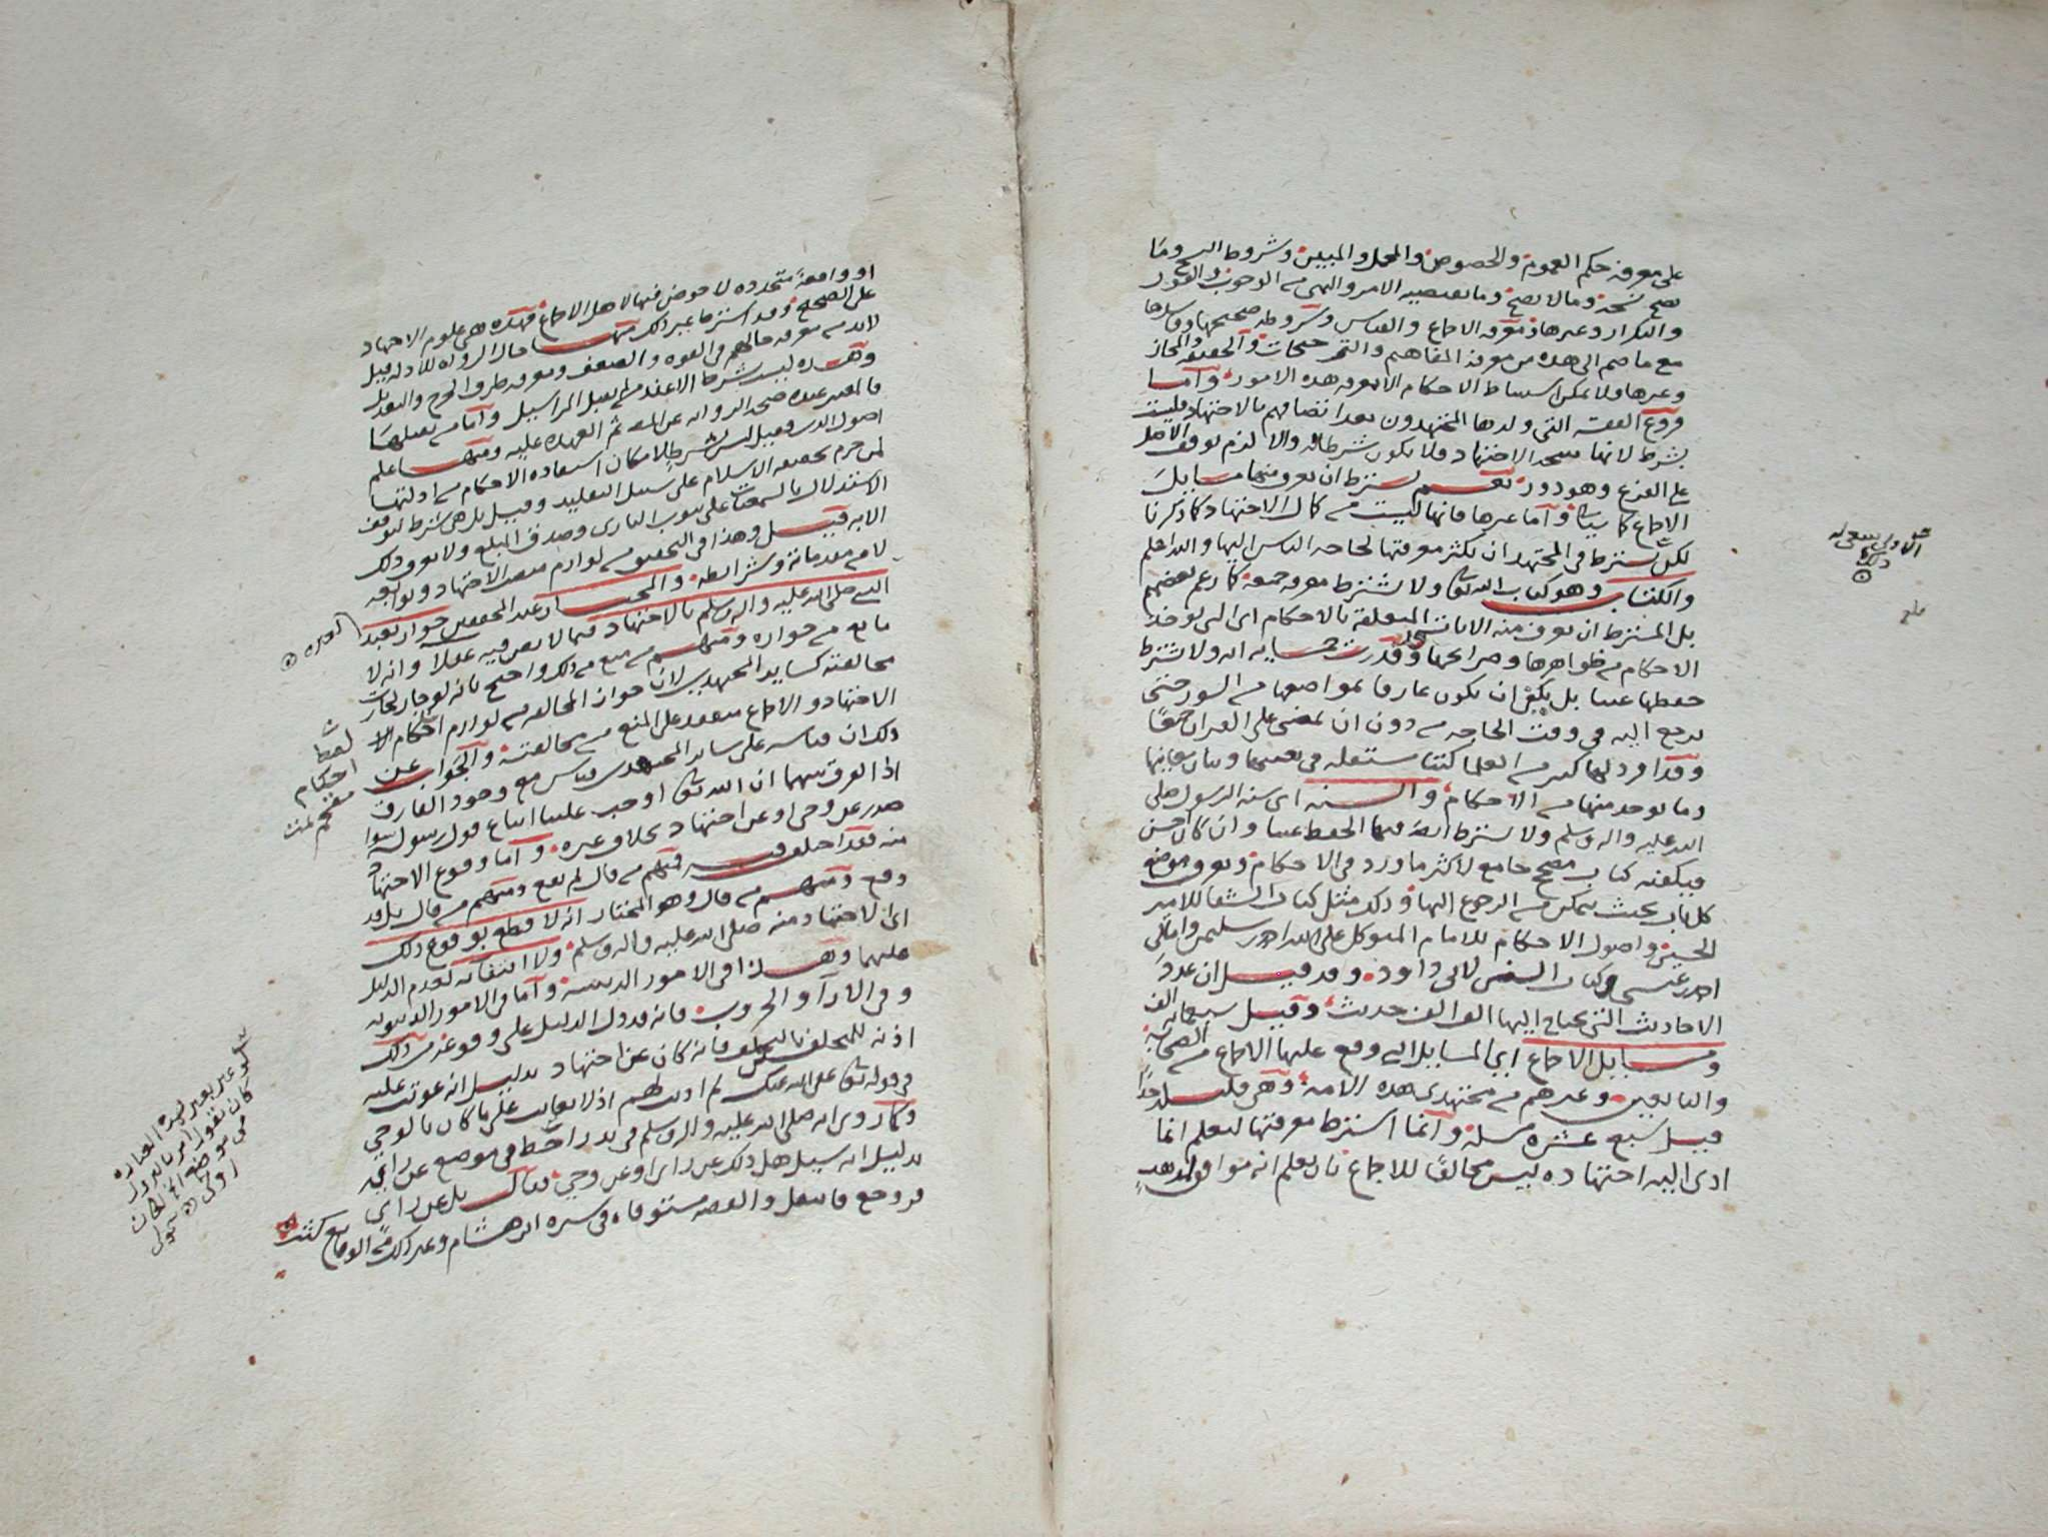 على معرفة حكم العموم والخصوص والمجمل والمبين وشروط النسخ وما
يصح نسخه وما لا يصح وما يقتضيه الامر والنهي من الوجوب والفور
والتكرار وغيرها ومعرفة الاجماع والقياس وشروطه صحيحها وفاسدها
مع ما ضم الى هذه من معرفة المفاهيم والترجيحات والحقيقة والمجاز
وغيرها ولا يمكن استنباط الاحكام الا بمعرفة هذه الامور واما
فروع الفقه التي ولدها المجتهدون بعد اتصافهم بالاجتهاد فليست
بشرط لانها نتيجة الاجتهاد فلا يكون شرطا له والا لزم توقف الاصل
على الفرع وهو دور نعم يشترط ان يعرف منها مسايل
الاجماع كما سياتي واما غيرها فانها ليست من كمال الاجتهاد كما ذكرنا
لكن يشترط في المجتهد ان يكثر معرفتها لحاجة الناس اليها والله اعلم
والكتاب وهو كتاب الله تعالى ولا يشترط معرفة جميعه كما زعم بعضهم
بل المشترط ان يعرف منه الايات المتعلقة بالاحكام اي التي يوخذ
الاحكام من ظواهرها وصرايحها وقدرت خمسماية اية ولا يشترط
حفظها غيبا بل يكفي ان يكون عارفا بمواضعها من السور حتى
يرجع اليه في وقت الحاجة من دون ان يمضي على القران جمعا
وقد افرد لها كثير من العلما كتبا مستقلة في تعيينها وبيان معانيها
وما يوخذ منها من الاحكام والسنة اي سنة الرسول صلى
الله عليه واله وسلم ولا يشترط ايضا فيها الحفظ غيبا وان كان احسن
فيكفيه كتاب مصحح جامع لاكثر ما ورد في الاحكام ويعرف موضع
كل باب بحيث يتمكن من الرجوع اليها وذلك مثل كتاب الشفا للامير
الحسين واصول الاحكام للامام المتوكل على الله احمد بن سليمن وامالي
احمد بن عيسى وكتاب السنن لابي داود وقد قيل ان عدد
الاحاديث التي يحتاج اليها الف الف حديث وقيل سبعماية الف
ومسايل الاجماع اي المسايل التي وقع عليها الاجماع من الصحابة
والتابعين وغيرهم من مجتهدي هذه الامة وهي قليلة جدا
قيل سبع عشرة مسلة وانما اشترط معرفتها ليعلم انما
ادى اليه اجتهاده ليس مخالفا للاجماع بان يعلم انه موافق لمذهب
او واقعة متجددة لا خوض فيها لاهل الاجماع فهذه هي علوم الاجتهاد
على الصحيح وقد اشترط غير ذلك منها حال الرواة للادلة قيل
لا بد من معرفة حالهم في القوة والضعف ومعرفة طرق الجرح والتعديل
وهذه ليست شرطا الا عند من لم يقبل المراسيل واما من يقبلها
فالمعتبر عنده صحة الرواية عن الثقة ثم العهدة عليه ومنها علم
اصول الدين فقيل ليس بشرط لامكان استفادة الاحكام من ادلتها
لمن جزم بحقيقة الاسلام على سبيل التقليد وقيل بل هي شرط لتوقف
الاستدلال بالسمعيات على ثبوت الباري وصدق المبلغ ولا يعرف ذلك
الا به قيل وهذا في التحقيق من لوازم منصب الاجتهاد وتوابعه
لا من مقدماته وشرايطه والمختار عند المحققين جواز تعبد
النبي صلى الله عليه واله وسلم بالاجتهاد فيما لا نص فيه عقلا وانه لا
مانع من جوازه ومنهم من منع من ذلك واحتج بانه لو جاز لجازت
مخالفته كساير المجتهدين لان جواز المخالفة من لوازم احكام
الاجتهاد والاجماع منعقد على المنع من مخالفته والجواب عن
ذلك ان قياسه على ساير المجتهدين قياس مع وجود الفارق
اذ الفرق بينهما ان الله تعالى اوجب علينا اتباع قول رسوله سوا
صدر عن وحي او عن اجتهاد بخلاف غيره واما وقوع الاجتهاد
منه فقد اختلف فيه فمنهم من قال لم يقع ومنهم من قال بل قد
وقع ومنهم من قال وهو المختار انه لا قطع بوقوع ذلك
اي الاجتهاد منه صلى الله عليه واله وسلم ولا انتفائه لعدم الدليل
عليهما وهذا في الامور الدينية واما في الامور الدنيوية
وفي الارآ والحروب فانه قد دل الدليل على وقوعه من ذلك
اذنه للمخلفين بالتخلف فانه كان عن اجتهاد بدليل انه عوتب عليه
في قوله تعالى عفا الله عنك لم اذنت لهم اذ لا يعاتب على ما كان بالوحي
وكما روي انه صلى الله عليه واله وسلم في بدر احط في موضع عن راي
بدليل انه سيل هل ذلك عن راي او عن وحي فقال بل عن راي
فروجع فانتقل والقصة مستوفاة في سيرة ابن هشام وغير ذلك من الوقايع كثيرة
لفظ
احكام
مقحم تمت